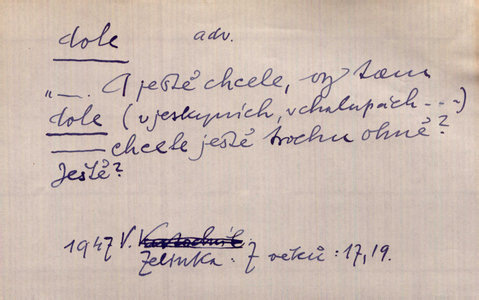 dole adv.
„—. A ještě chcete, vy tam
dole (v jeskyních, v chalupách ---)
—— chcete ještě trochu ohně?
Ještě?
1947 V.
Zelinka: 7 veků: 17, 19.